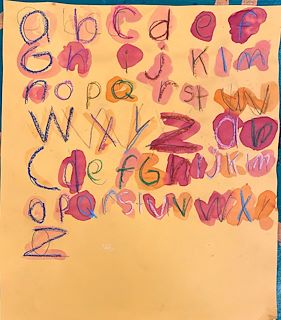 a b C d e f
G h i j K l m
n o p Q r s t u v
W x y Z a b
C d e f G h i j K l m
o p Q r s t u v W x y
Z